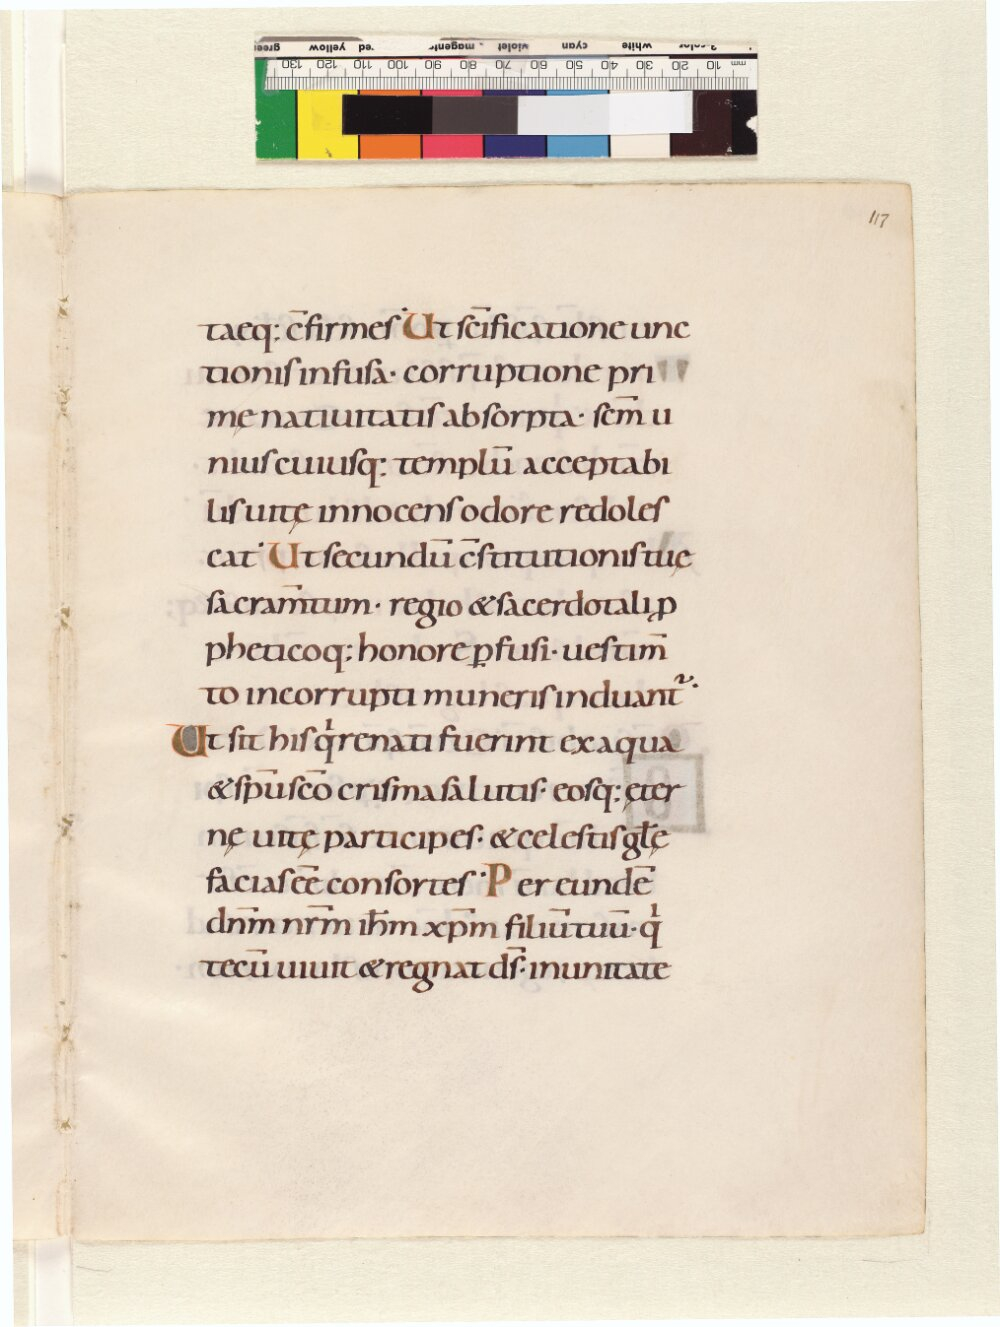 117
taeq: c̄firmes· Ut sc̄ificatione unc
tionis infusa· corruptione pri
mę natiuitatis absorpta· sc̄m u
nius cuiusq: templū acceptabi
lis uitę innocens odore redoles
cat· Ut secundū c̄stitutionis tuę
sacram̄tum· regio & sacerdotali ꝓ
pheticoq: honore ꝑfusi· uestim̄
to incorrupti muneris induant᷑·
Ut sit his qͥ renati fuerint ex aqua
& sp̄u sc̄o crisma salutis· eosq: ęter
nę uitę participes· & celestis gl̄ę
facias ēē consortes· Per eundē
dn̄m nr̄m ih̄m xp̄m filiū tuū· qͥ
tecū uiuit & regnat ds̄· in unitate